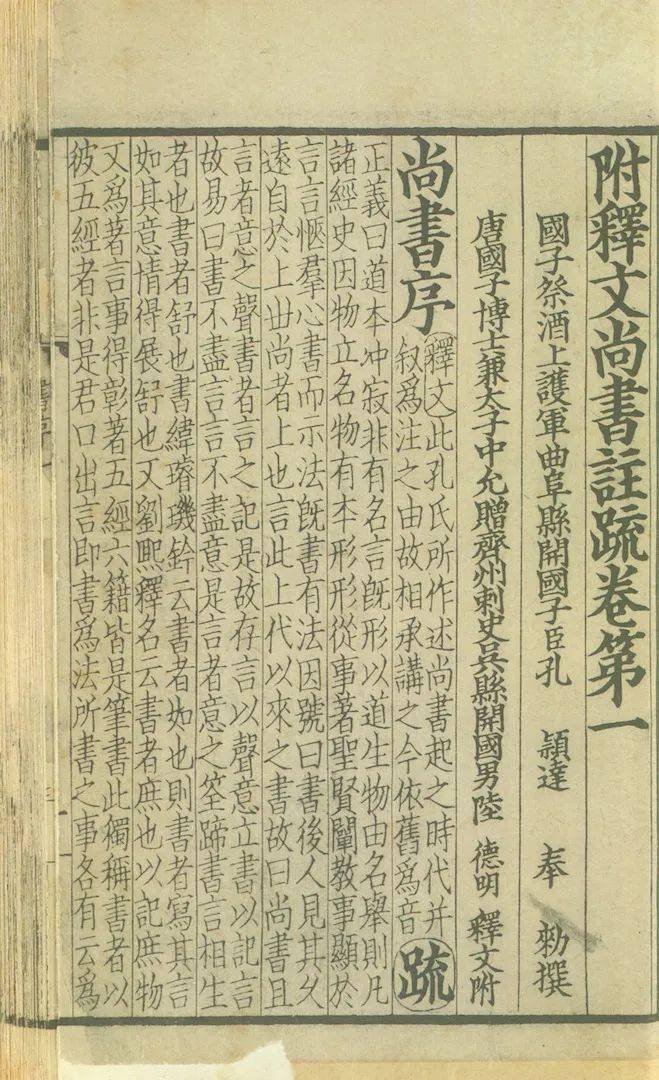 附釋文尚書註疏卷第一
國子祭酒上護軍曲阜縣開國子臣孔 頴達 奉 勑撰
唐國子博士兼太子中允贈齊州刺史吳縣開國男陸 德明 釋文附
尚書序 釋文此孔氏所作述尚書起之時代并
叙爲注之由故相承講之今依舊爲音 疏
正義曰道本冲寂非有名言旣形以道生物由名舉則凡
諸經史因物立名物有本形形從事著聖賢闡教事顯於
言言愜羣心書而示法旣書有法因號曰書後人見其久
遠自於上世尚者上也言此上代以來之書故曰尚書且
言者意之聲書者言之記是故存言以聲意立書以記言
故易曰書不盡言言不盡意是言者意之筌蹄書言相生
者也書者舒也書緯璿璣鈐云書者如也則書者寫其言
如其意情得展舒也又劉熈釋名云書者庶也以記庶物
又爲著言事得彰著五經六籍皆是筆書此獨稱書者以
彼五經者非是君口出言即書爲法所書之事各有云爲